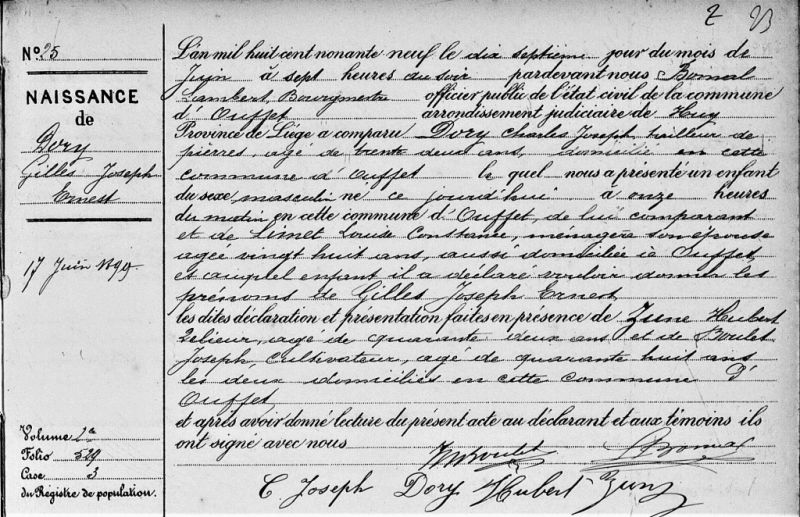 2 23
No. 25
NAISSANCE
de
Dory
Gilles Joseph
Ernest
17 Juin 1899
Volume 2a
Folio 529
Case 3
du Registre de population.
L'an mil huit cent nonante neuf le dix septième jour du mois de
Juin à sept heures du soir pardevant nous Bonal
Lambert, Bourgmestre officier public de l'état civil de la commune
d'Ouffet arrondissement judiciaire de Huy
Province de Liège a comparu Dory Charles Joseph, tailleur de
pierres, agé de trente deux ans, domicilié en cette
commune d'Ouffet le quel nous a présenté un enfant
du sexe masculin né ce jourd'hui à onze heures
du matin en cette commune d'Ouffet, de lui comparant
et de Limet Louise Constance, ménagère son épouse
agée vingt huit ans, aussi domiciliée à Ouffet,
et auquel enfant il a déclaré vouloir donner les
prénoms de Gilles Joseph Ernest
les dites déclaration et présentation faites en présence de Zune Hubert
relieur, agé de quarante deux ans et de Boulet
Joseph, cultivateur, agé de quarante huit ans
les deux domiciliés en cette commune d'
Ouffet
et après avoir donné lecture du présent acte au déclarant et aux témoins ils
ont signé avec nous
Boulet L Bonal
C Joseph Dory Hubert Zune